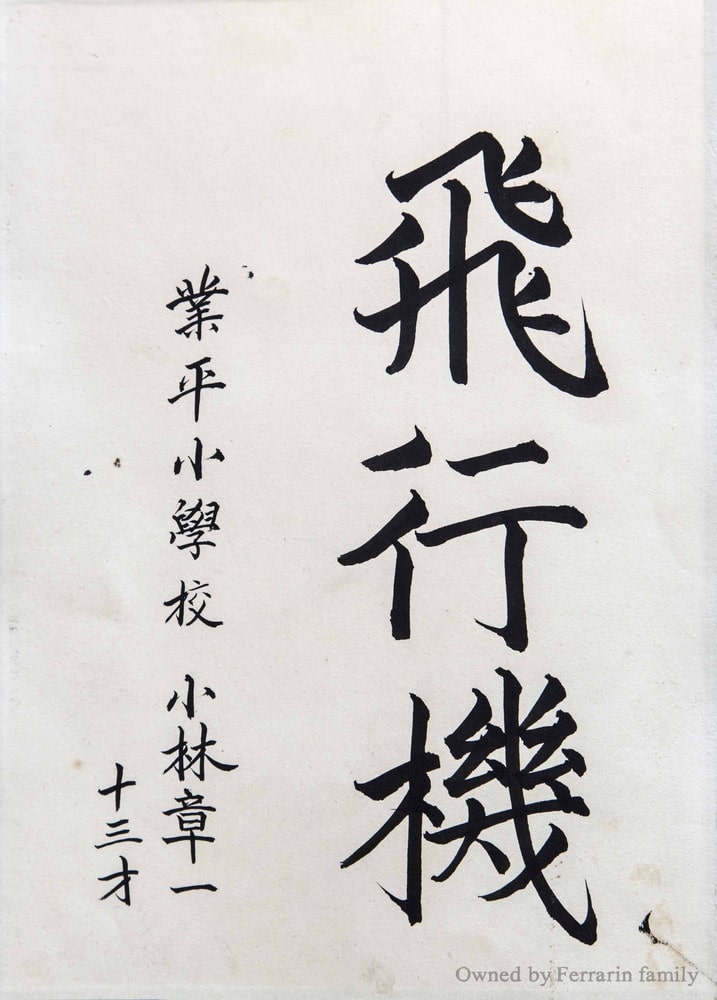 飛行機
業平小學校 小林章一
十三才
Owned by Ferrarin family